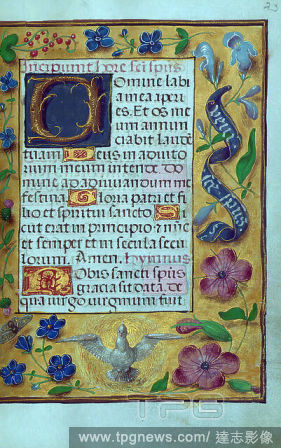 23
Incipiunt hore sci spus
Domine labi
a mea aperi
es. Et os me
um annun
ciabit laude
tuam Deus in adiuto
rium meum intende do
mine ad adiuvandum me
festina Gloria patri et fi
lio et spiritui sancto Si
cut erat in principio et nunc
et semper et in secula secu
lorum. Amen. hymnus
Nobis sancti spus
gracia sit data de
qua virgo virginum fuit
Veni
spus
TPG
www.tpgnews.com/達志影像